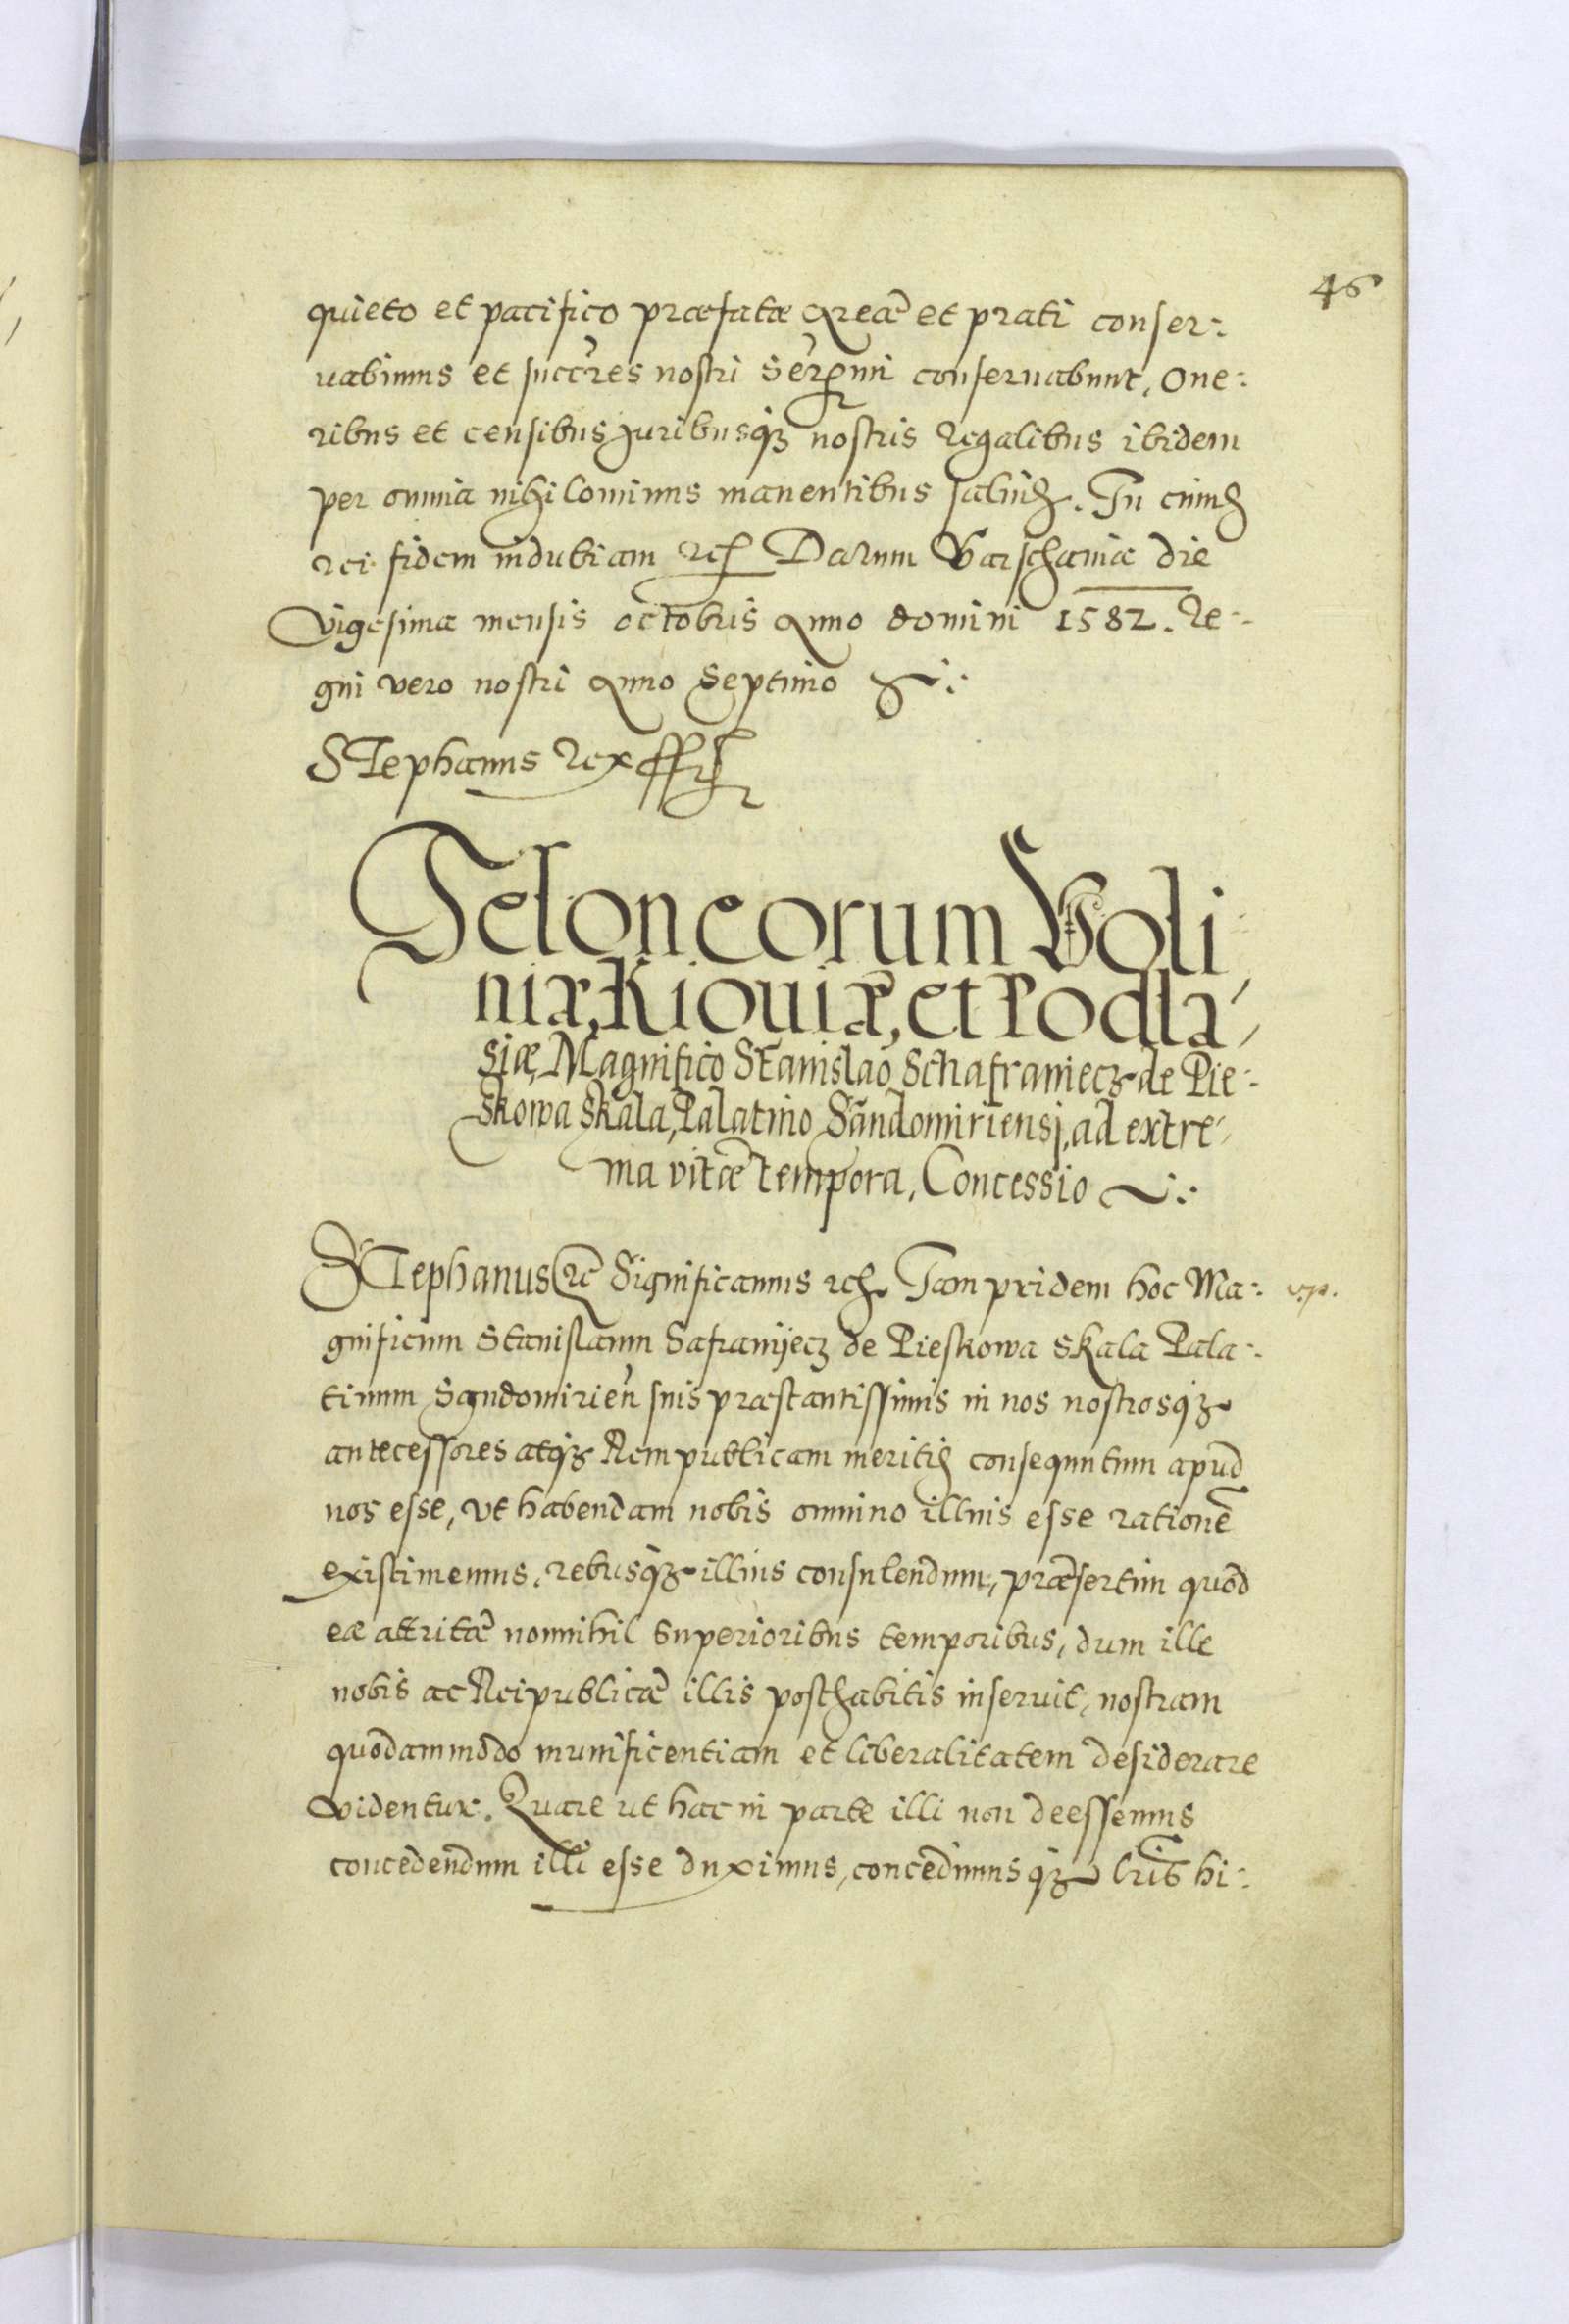 46
quieto et pacifico præfatæ areæ et prati conser-
uabimus et succ̃res nostri Ser̃mi conseruabunt, one-
ribus et censibus juribusq₃ nostris Regalibus ibidem
per omnia nihilominus manentibus saluis. In cuius
rei fidem indubiam etc̃ Datum Varschaviæ die
Vigesima mensis octobris Anno domini 1582. Re-
gni vero nostri Anno Septimo
Stephanus Rex ssst
Teloneorum Voli
niæ, Kiouiæ, et Podla-
siæ, Magnifico Stanislao Schafraniecz de Pie-
skowa skala, Palatino Sandomiriensj, ad extre-
ma vitæ tempora, Concessio
Stephanus etc̃ Significamus etc̃ Jam pridem hoc Ma-
gnificum Stanislaum Safranijecz de Pieskowa Skala Pala-
tinum Sandomirieñ suis præstantissimis in nos nostrosq₃
antecessores atq₃ Rempublicam meritis consequutum apud
nos esse, ut habendam nobis omnino illius esse rationẽ
existimemus, rebusq₃ illius consulendum, præsertim quod
eæ attritæ nonnihil superioribus temporibus, dum ille
nobis ac Reipublicæ illis posthabitis inseruit, nostram
quodammodo munificentiam et liberalitatem desiderare
videntur. Quare ut hac in parte illi non deessemus
concedendum illi esse duximus, concedimusq₃ lr̃is hi-